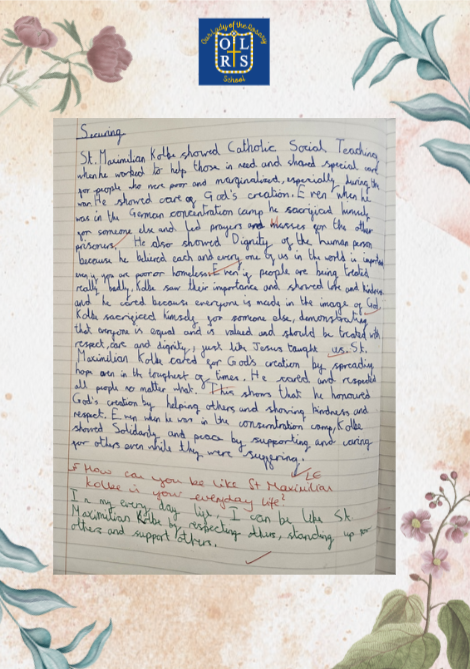 Our Lady of the Rosary
O L
R S
School
Securing
St. Maximilian Kolbe showed Catholic Social Teaching
when he worked to help those in need and showed special care
for people who were poor and marginalised, especially during the
war. He showed care of God's creation. Even when he
was in the German concentration camp he sacrificed himself
for someone else and led prayers and masses for the other
prisoners. He also showed Dignity of the human person
because he believed each and every one of us in the world is important
even if you are poor or homeless. Even if people are being treated
really badly, Kolbe saw their importance and showed love and kindness
and he cared because everyone is made in the image of God.
Kolbe sacrificed himself for someone else, demonstrating
that everyone is equal and is valued and should be treated with
respect, care and dignity, just like Jesus taught us. St.
Maximilian Kolbe cared for God's creation by spreading
hope even in the toughest of times. He cared and respected
all people no matter what. This shows that he honoured
God's creation by helping others and showing kindness and
respect. Even when he was in the concentration camp, Kolbe
showed Solidarity and peace by supporting and caring
for others even while they were suffering.
How can you be like St Maximilian
Kolbe in your everyday life?
In my every day life I can be like St.
Maximilian Kolbe by respecting others, standing up for
others and support others.